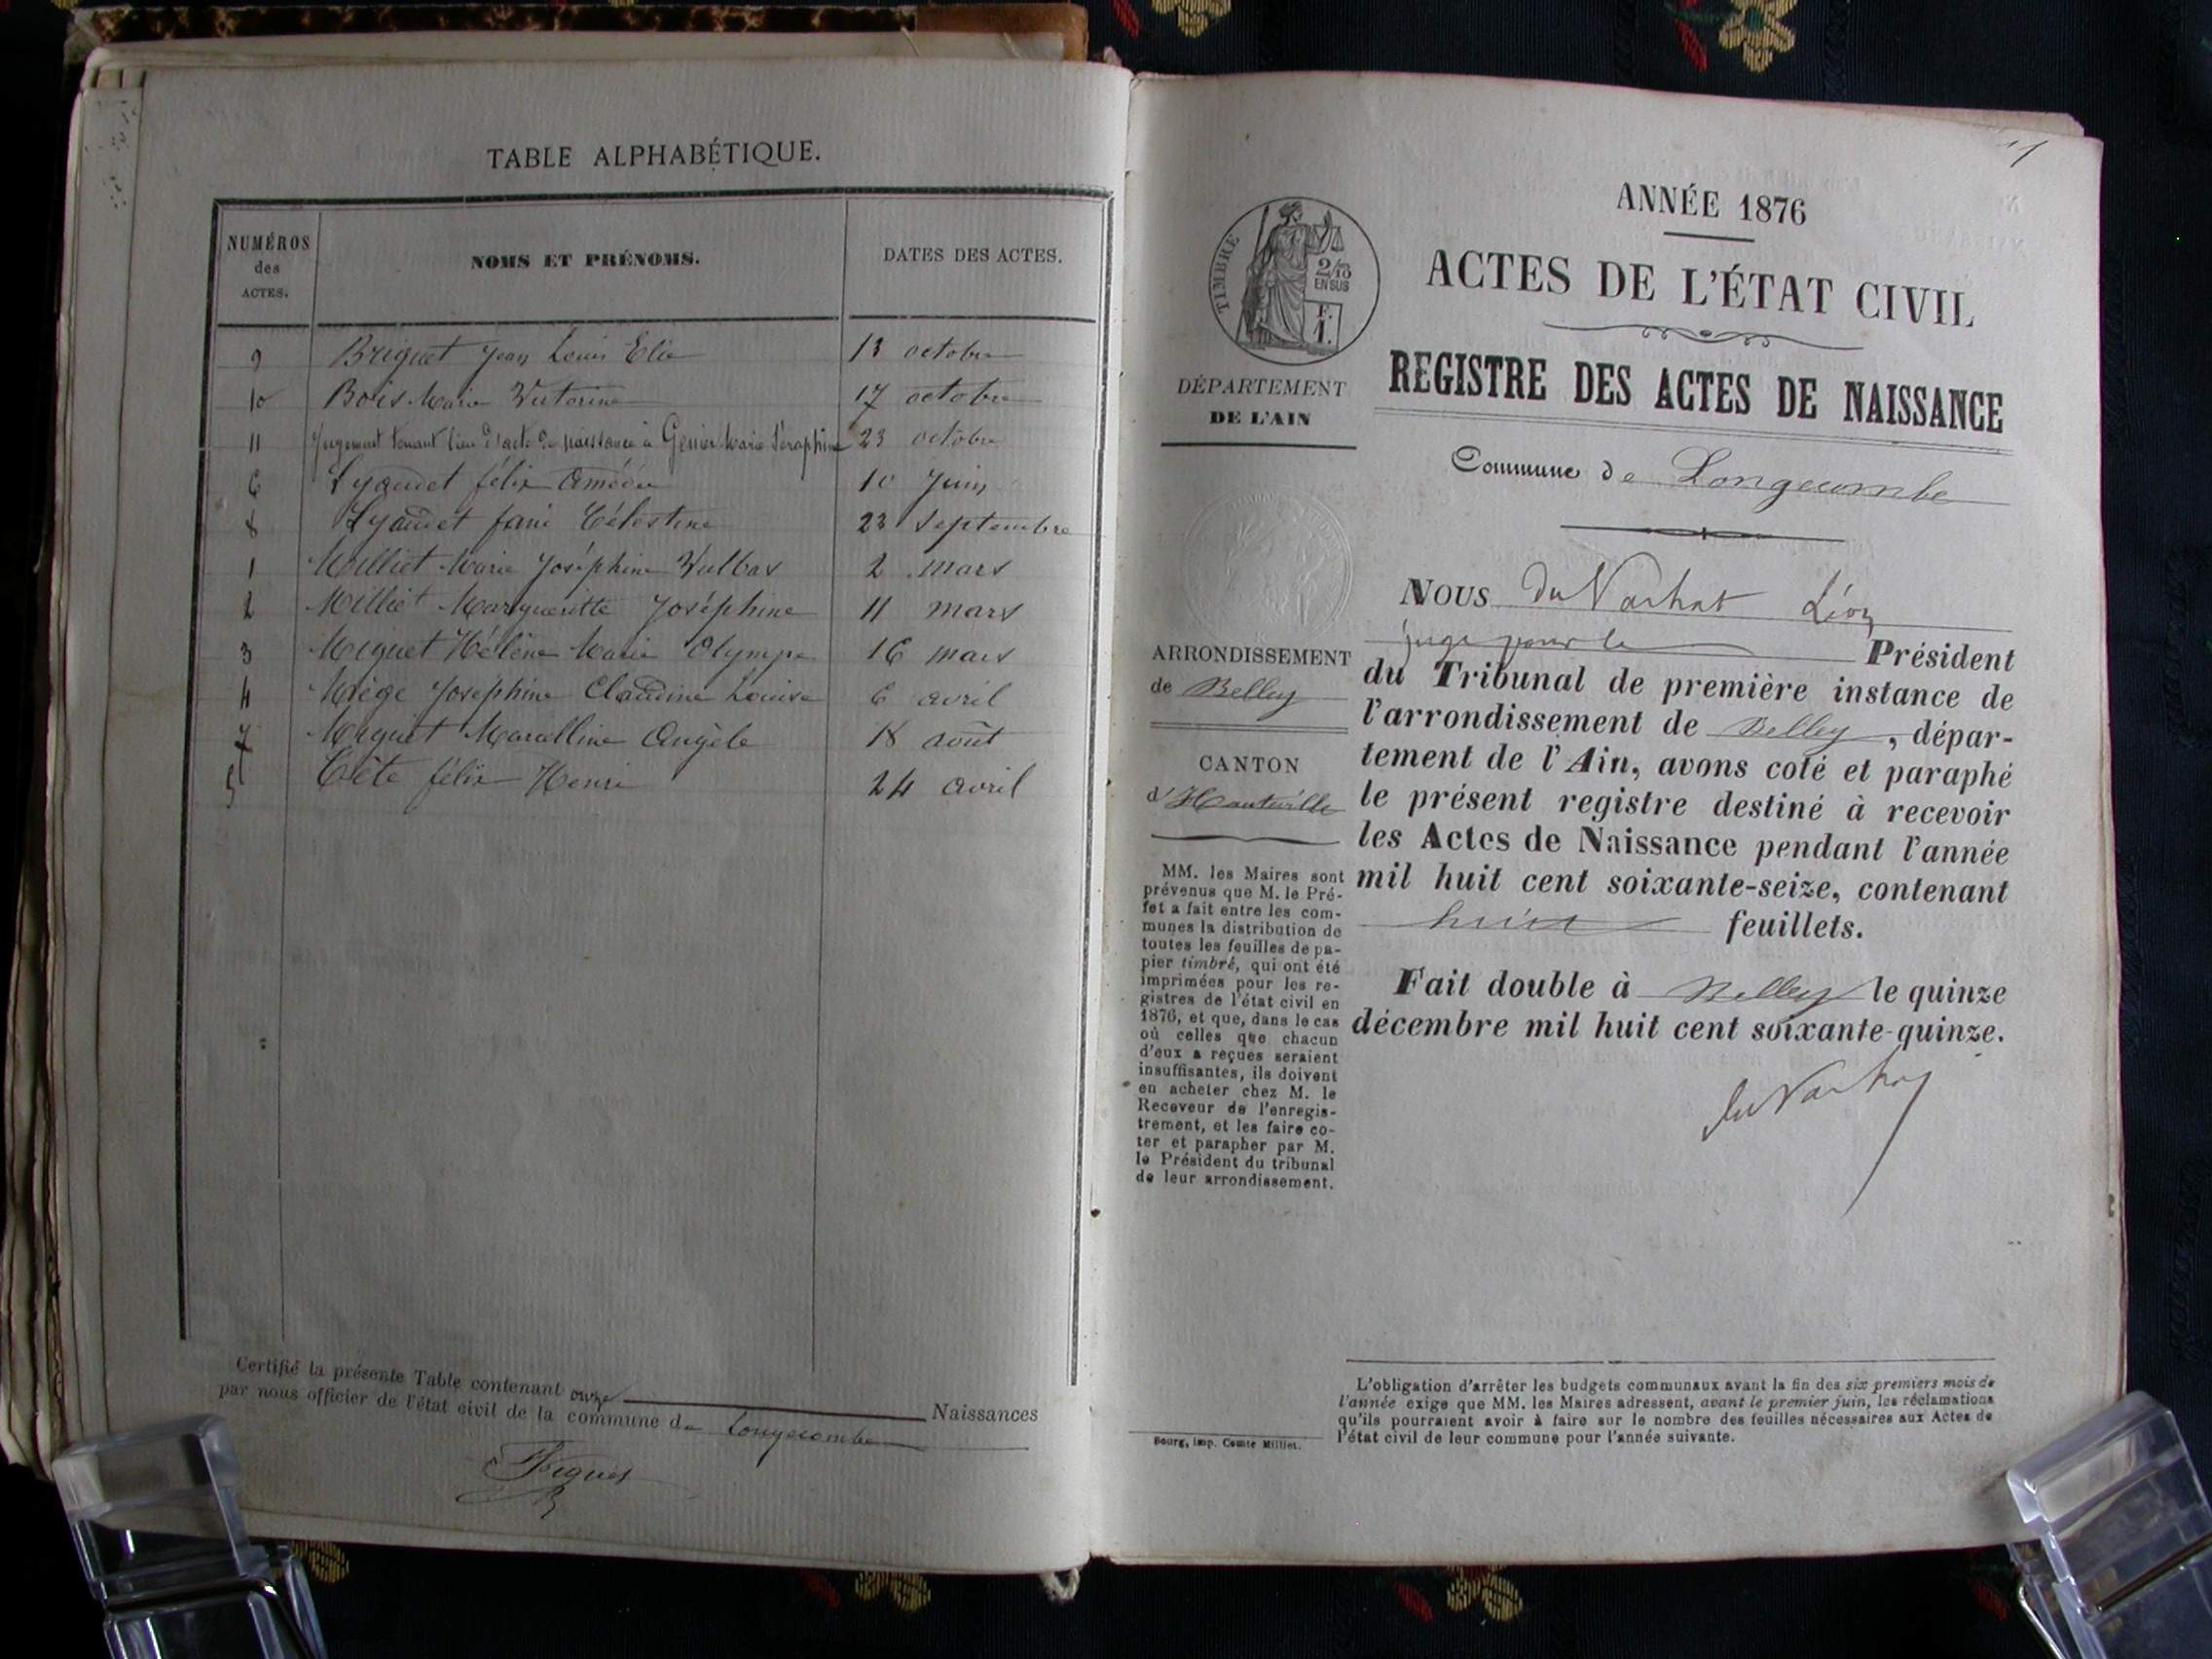 TABLE ALPHABÉTIQUE.
NUMÉROS des ACTES. NOMS ET PRÉNOMS. DATES DES ACTES.
9 Briguet Jean Louis Elie 13 octobre
10 Bois Marie Victorine 17 octobre
11 Jugement tenant lieu d'acte de naissance à Genier Marie Séraphine 23 octobre
6 Lyaudet félix Amédée 10 Juin
8 Lyaudet fani Célestine 23 Septembre
1 Milliet Marie Joséphine Vulbas 2 mars
2 Milliet Margueritte Joséphine 11 mars
3 Miguet Hélène Marie Olympe 16 mars
4 Miège Joséphine Claudine Louise 6 avril
7 Miguet Marcelline Angèle 18 août
5 Tête félix Henri 24 avril
Certifié la présente Table contenant onze Naissances
par nous officier de l'état civil de la commune de Longecombe
ANNÉE 1876
ACTES DE L'ÉTAT CIVIL
REGISTRE DES ACTES DE NAISSANCE
Commune de Longecombe
TIMBRE
2/10
EN SUS
F.
1.
DÉPARTEMENT
DE L'AIN
ARRONDISSEMENT
de Belley
CANTON
d'Hauteville
MM. les Maires sont
prévenus que M. le Pré-
fet a fait entre les com-
munes la distribution de
toutes les feuilles de pa-
pier timbré, qui ont été
imprimées pour les re-
gistres de l'état civil en
1876, et que, dans le cas
où celles que chacun
d'eux a reçues seraient
insuffisantes, ils doivent
en acheter chez M. le
Receveur de l'enregis-
trement, et les faire co-
ter et parapher par M.
le Président du tribunal
de leur arrondissement.
NOUS du Vachat Léon
juge pour le Président
du Tribunal de première instance de
l'arrondissement de Belley, dépar-
tement de l'Ain, avons coté et paraphé
le présent registre destiné à recevoir
les Actes de Naissance pendant l'année
mil huit cent soixante-seize, contenant
huit feuillets.
Fait double à Belley le quinze
décembre mil huit cent soixante-quinze.
du Vachat
L'obligation d'arrêter les budgets communaux avant la fin des six premiers mois de
l'année exige que MM. les Maires adressent, avant le premier juin, les réclamations
qu'ils pourraient avoir à faire sur le nombre des feuilles nécessaires aux Actes de
l'état civil de leur commune pour l'année suivante.
Bourg, imp. Comte Milliet.